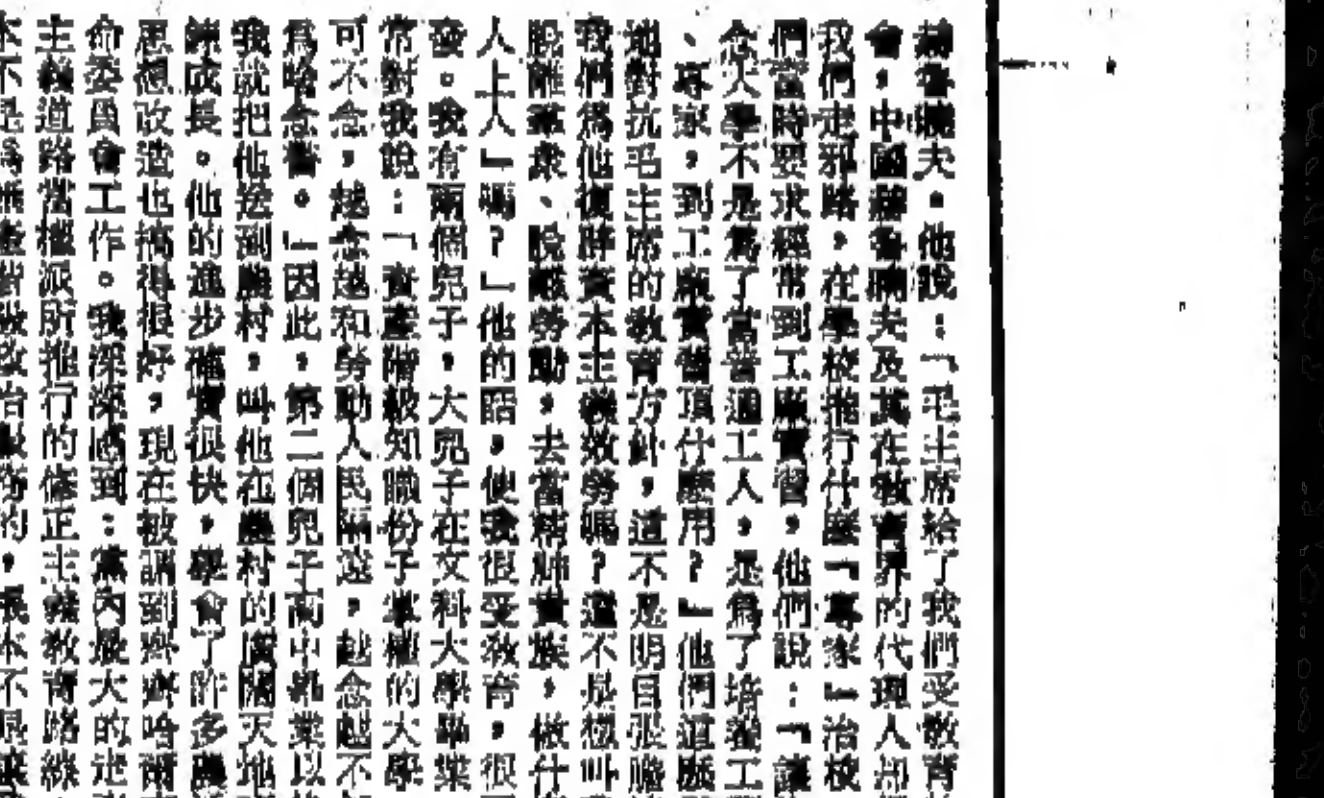 赫魯曉夫。他說：「毛主席給了我們受教育
會，中國赫魯曉夫及其在教育界的代理人却
我們走邪路，在學校推行什麼「專家」治校
們當時要求經常到工廠實習，他們說：「讓
念大學不是爲了當普通工人，是爲了培養工
、專家，到工廠實習頂什麼用？」他們這
地對抗毛主席的教育方針，這不是明目張膽
我們爲他復辟資本主義效勞嗎？還不是想叫
脫離羣衆、脫離勞動，去當精神貴族，做什
人上人」嗎？」他的話，使我很受敎育，很
發。我有兩個兒子，大兒子在文科大學畢業
常對我說：「資產階級知識份子掌權的大學
可不念，越念越和勞動人民隔遠，越念越不
爲啥念書。」因此，第二個兒子高中畢業以
我就把他送到農村，叫他在農村的廣闊天地
鍊成長。他的進步確實很快，學會了許多農
思想改造也搞得很好，現在被調到齊齊哈爾
命委員會工作。我深深感到：黨內最大的走
主義道路當權派所推行的修正主義教育路線